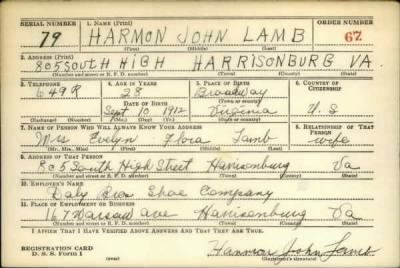 SERIAL NUMBER 1. NAME (Print) ORDER NUMBER
79 HARMON JOHN LAMB 67
(First) (Middle) (Last)
2. ADDRESS (Print)
805 SOUTH HIGH HARRISONBURG VA
(Number and street or R. F. D. number) (Town) (County) (State)
3. TELEPHONE 4. AGE IN YEARS 5. PLACE OF BIRTH 6. COUNTRY OF CITIZENSHIP
649R 28 Broadway
DATE OF BIRTH (Town or county)
Sept 10 1912 Virginia U. S
(Exchange) (No.) (Mo.) (Day) (Yr.) (State or country)
7. NAME OF PERSON WHO WILL ALWAYS KNOW YOUR ADDRESS 8. RELATIONSHIP OF THAT PERSON
Mrs Evelyn Flora Lamb wife
(Mr., Mrs., Miss) (First) (Middle) (Last)
9. ADDRESS OF THAT PERSON
805 South High Street Harrisonburg Va
(Number and street or R. F. D. number) (Town) (County) (State)
10. EMPLOYER'S NAME
Daly Bros Shoe Company
11. PLACE OF EMPLOYMENT OR BUSINESS
167 Warsaw Ave Harrisonburg Va
(Number and street or R. F. D. number) (Town) (County) (State)
I AFFIRM THAT I HAVE VERIFIED ABOVE ANSWERS AND THAT THEY ARE TRUE.
REGISTRATION CARD
D. S. S. Form 1 Harmon John Lamb
(Registrant's signature)